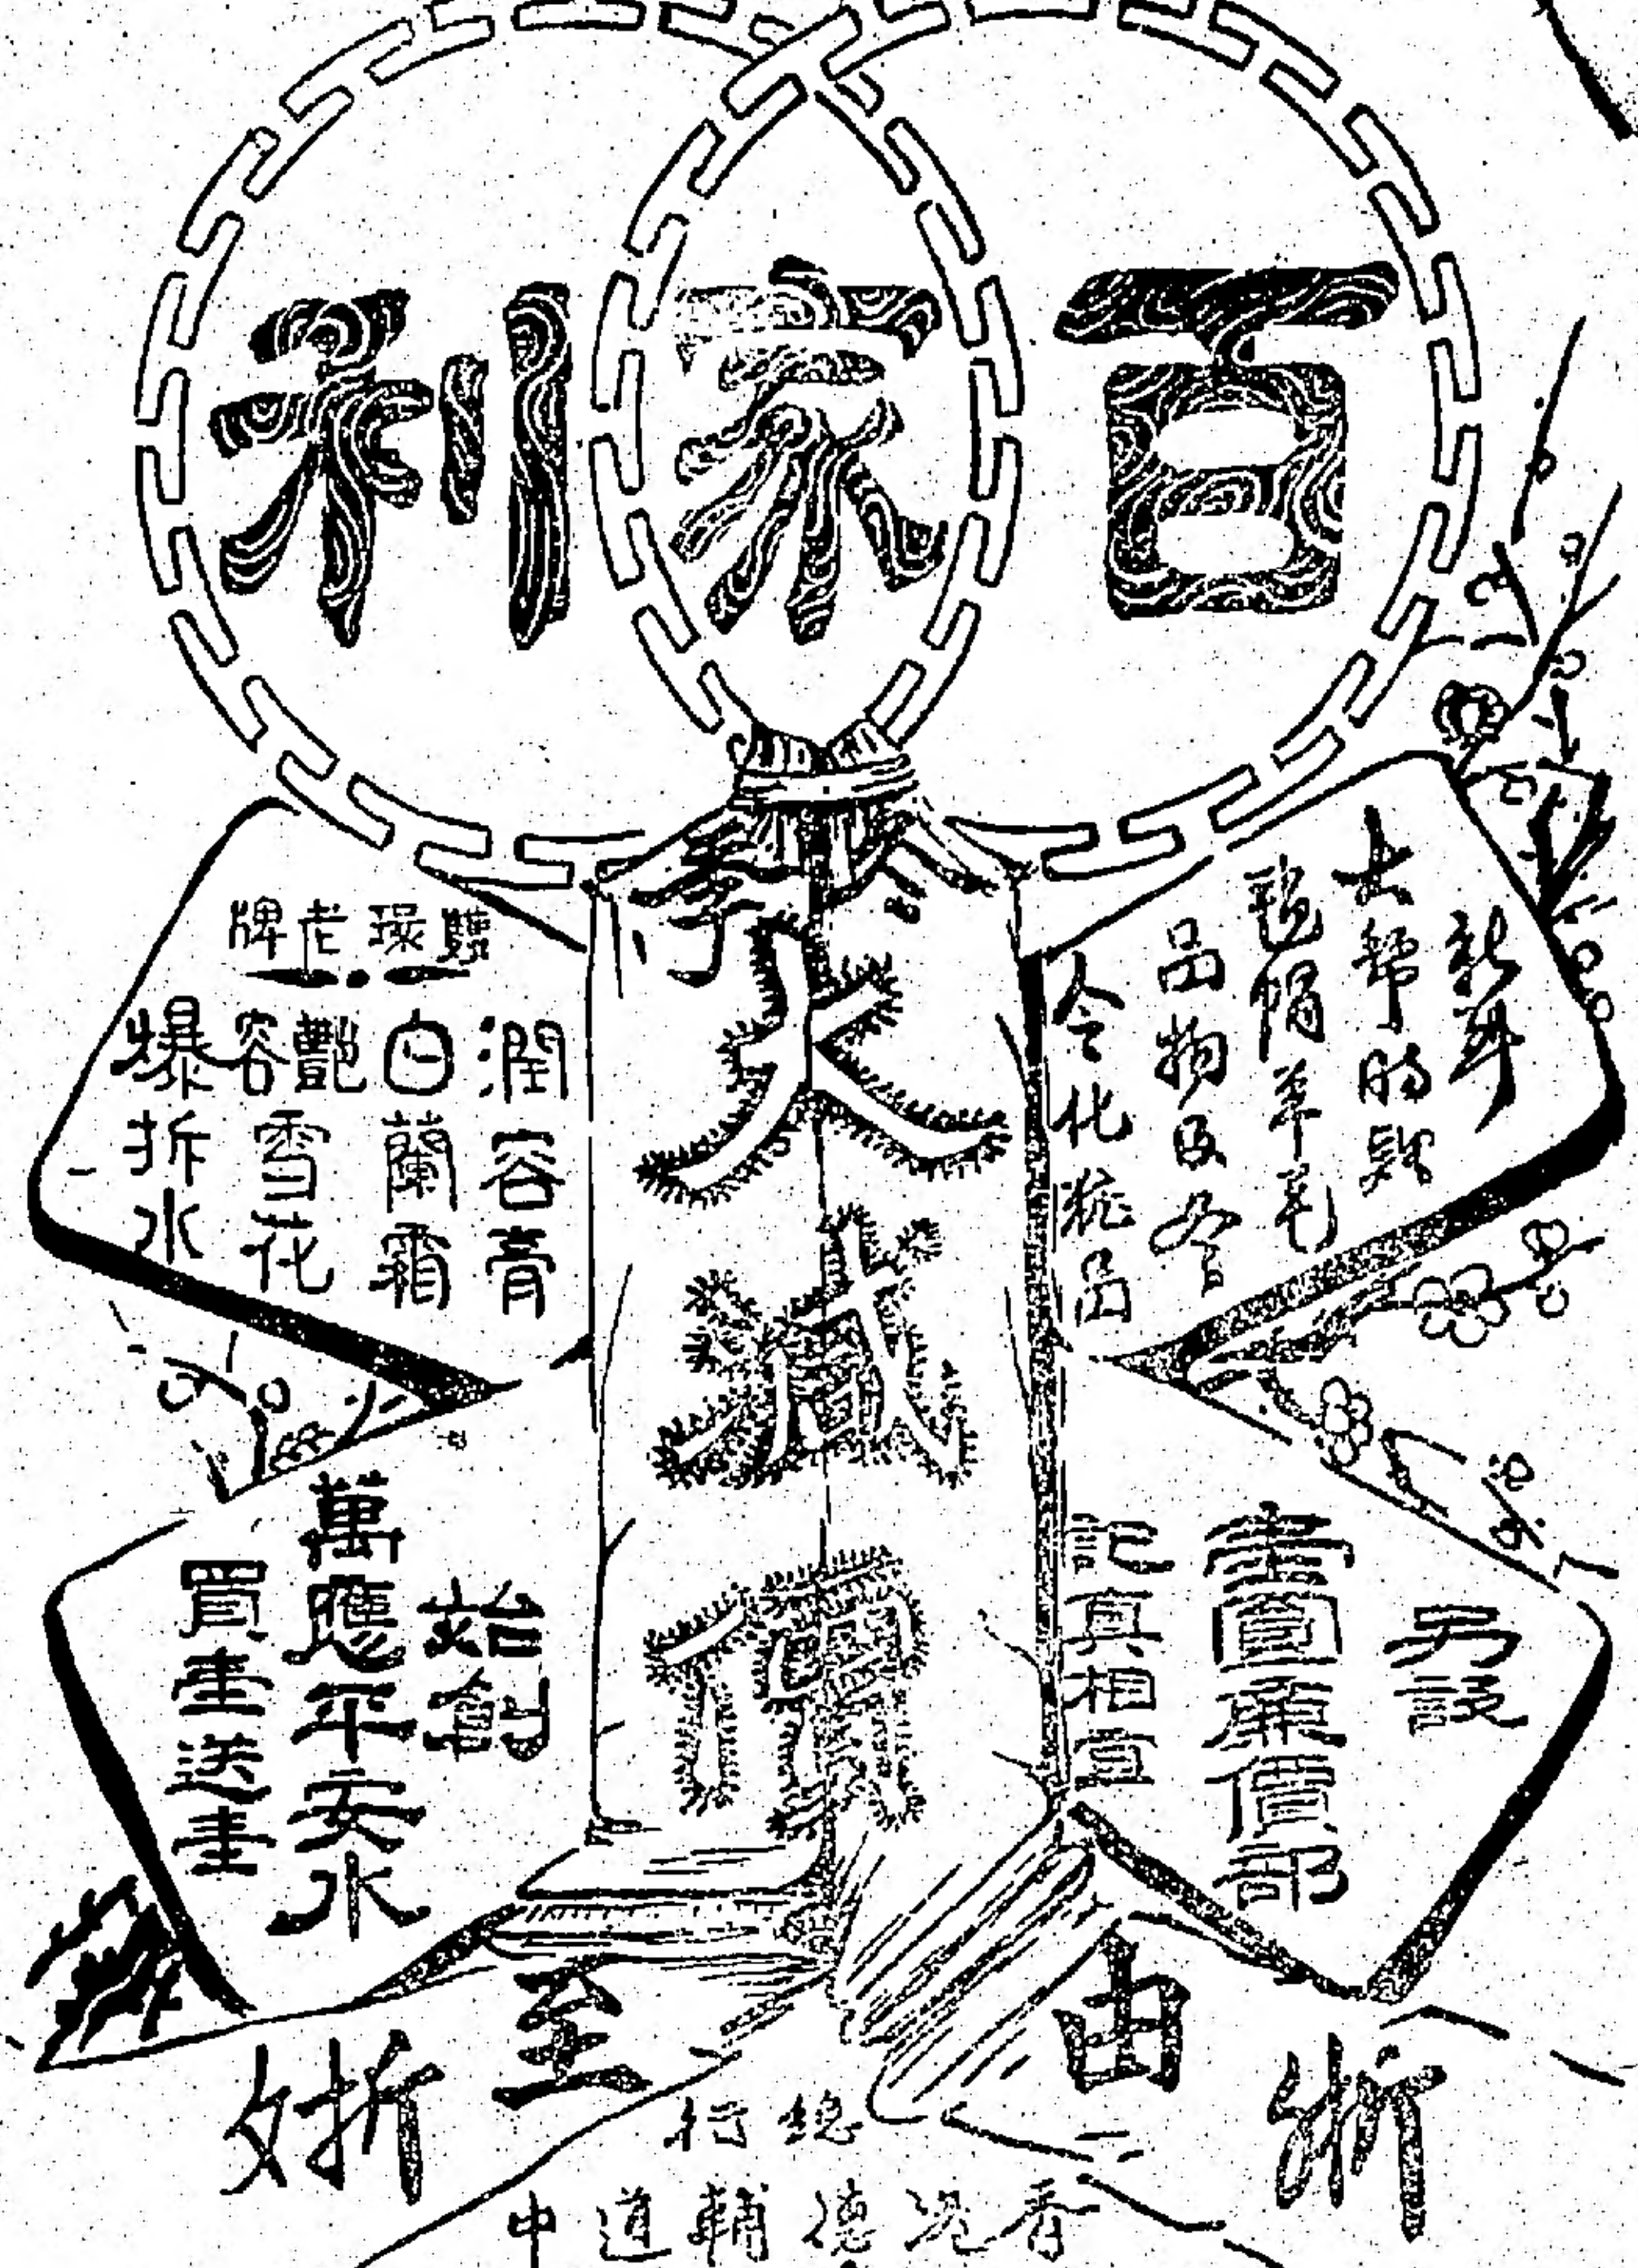 百家利
冬季大減價
新
大幫時款
氈帽羊毛
品物及冬
令化粧品
雙環老牌
潤容膏
白蘭霜
艷容雪花
爆拆水
另設
壹圓廉價部
記真相宜
始創
萬應平安水
買壹送壹
由
折
至
折
總行
香港德輔道中